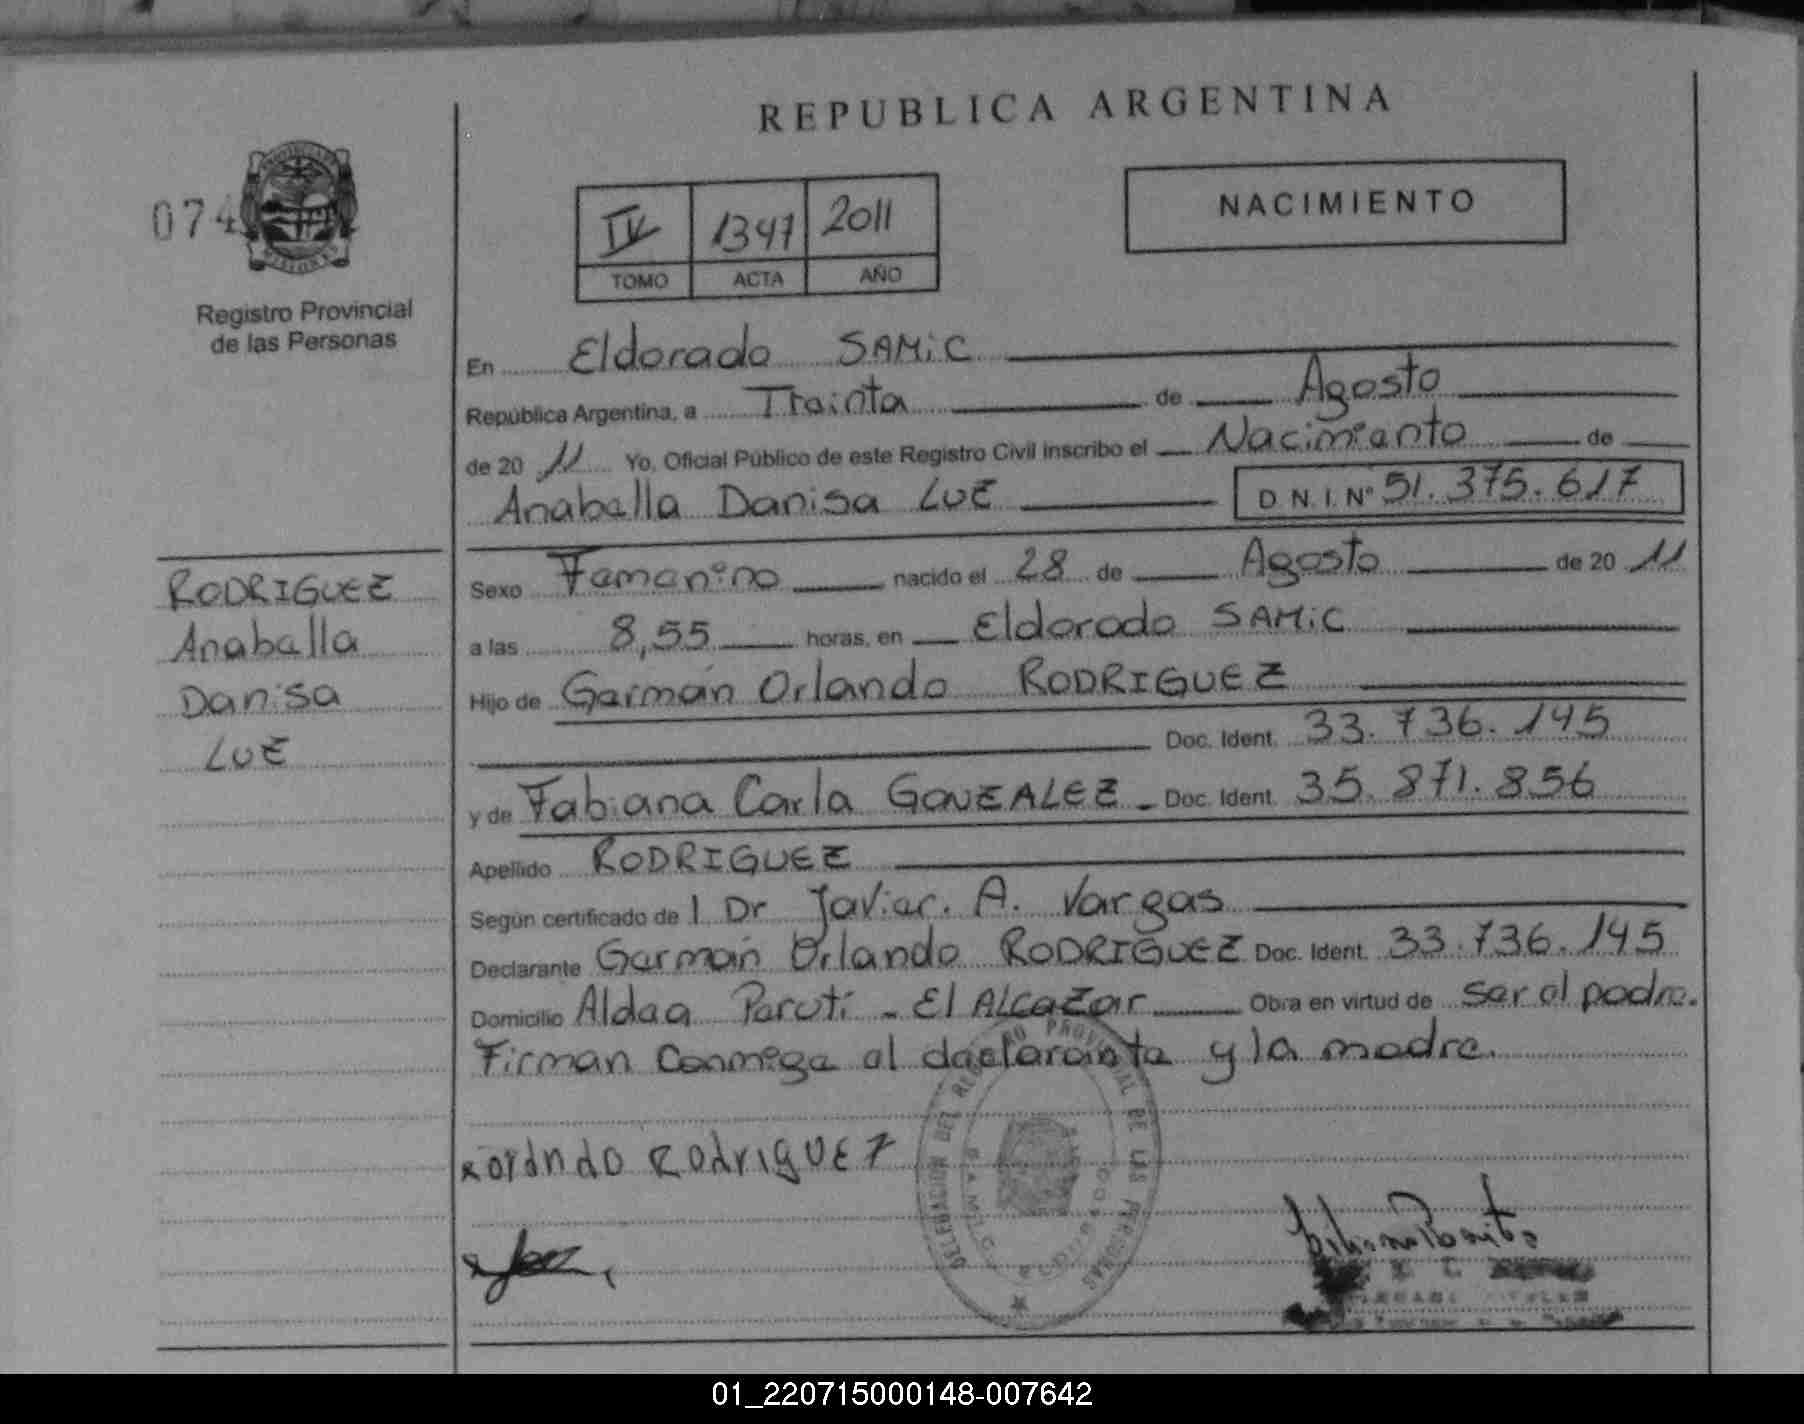 REPUBLICA ARGENTINA
074
PROVINCIA DE MISIONES
Registro Provincial
de las Personas
IV 1347 2011
TOMO ACTA AÑO
NACIMIENTO
En Eldorado SAMiC
República Argentina, a Treinta de Agosto
de 20 11 Yo, Oficial Público de este Registro Civil inscribo el Nacimiento de
Anabella Denisa LUZ D.N.I. Nº 51.375.617
RODRIGUEZ
Anabella
Denisa
LUZ
Sexo Femenino nacido el 28 de Agosto de 20 11
a las 8,55 horas, en Eldorado SAMiC
Hijo de Germán Orlando RODRIGUEZ
Doc. Ident. 33.736.145
y de Fabiana Carla GONZALEZ Doc. Ident. 35.871.856
Apellido RODRIGUEZ
Según certificado de l Dr Javier. A. Vargas
Declarante Germán Orlando RODRIGUEZ Doc. Ident. 33.736.145
Domicilio Aldea Peruti - El Alcazar Obra en virtud de ser el padre.
Firman Conmigo el declarante y la madre.
DELEGACION DEL REGISTRO PROVINCIAL DE LAS PERSONAS
RodrigUEZ
01_220715000148-007642